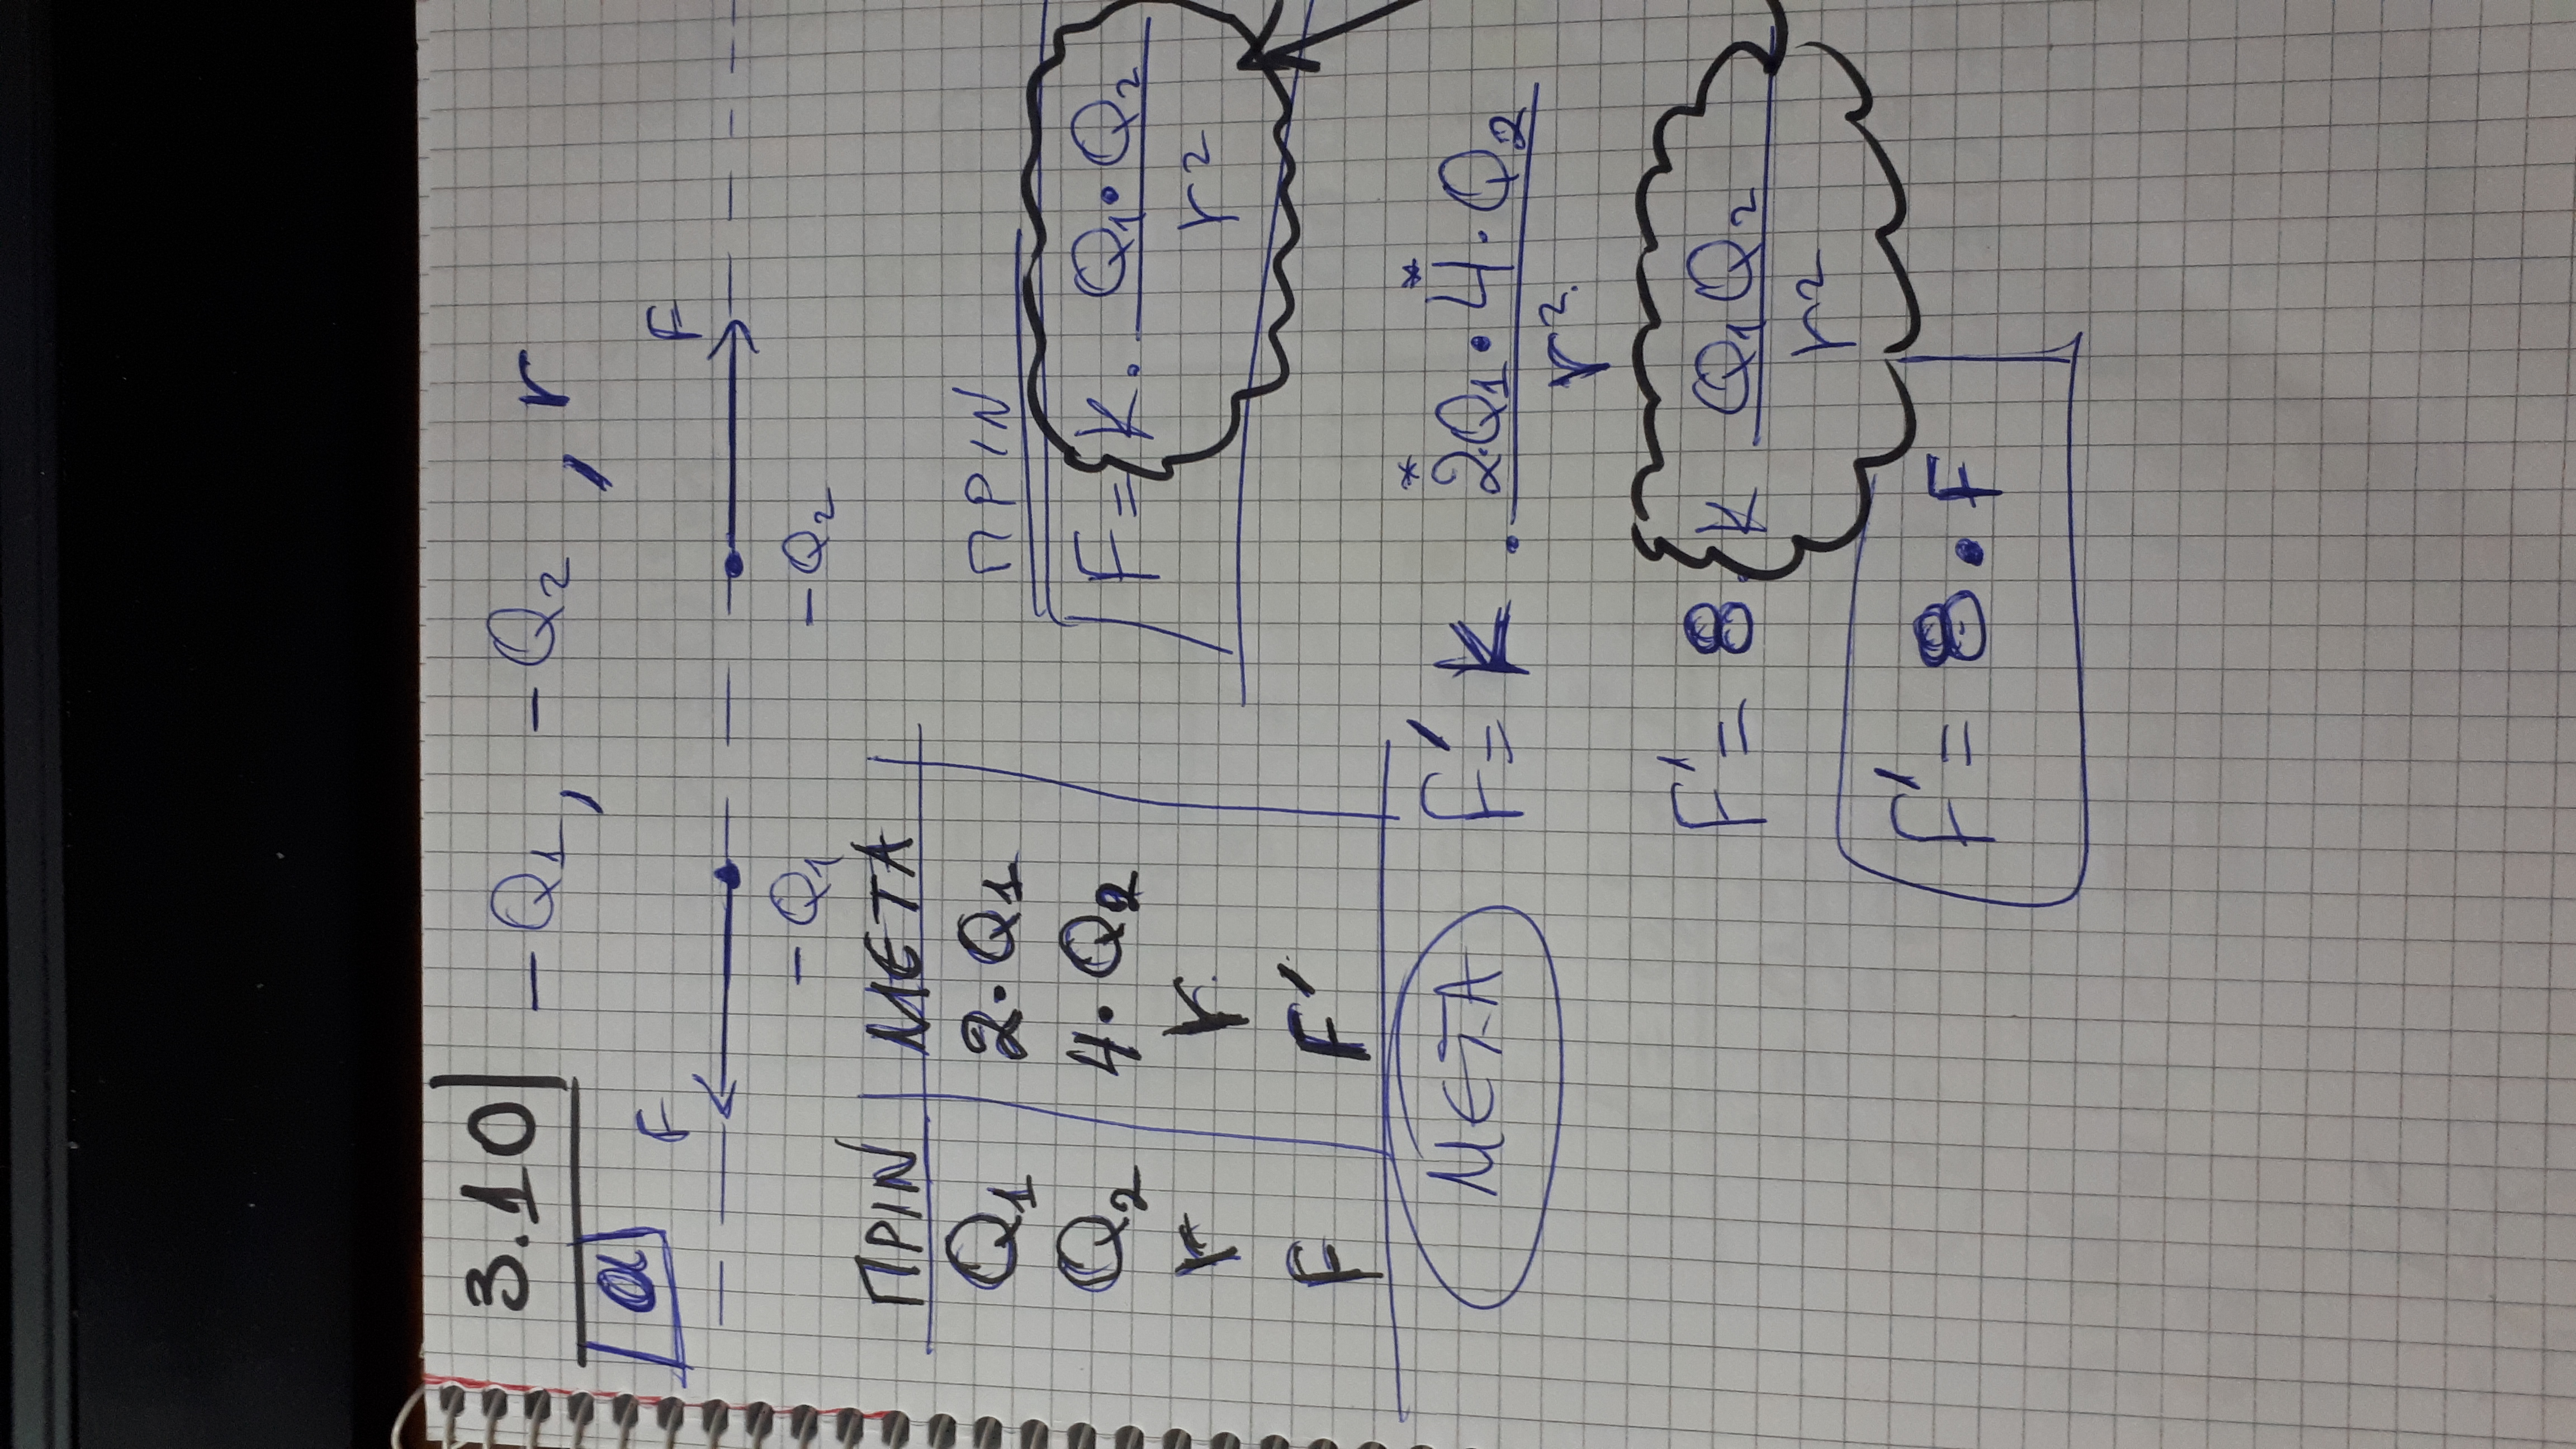 3.10 -Q₁, -Q₂, r
α
F F
-Q₁ -Q₂
ΠΡΙΝ ΜΕΤΑ
Q₁ 2·Q₁
Q₂ 4·Q₂
r r
F F'
ΠΡΙΝ
F = K · Q₁·Q₂ / r²
ΜΕΤΑ
F' = K · 2Q₁·4·Q₂ / r²
F' = 8 · K Q₁Q₂ / r²
F' = 8 · F